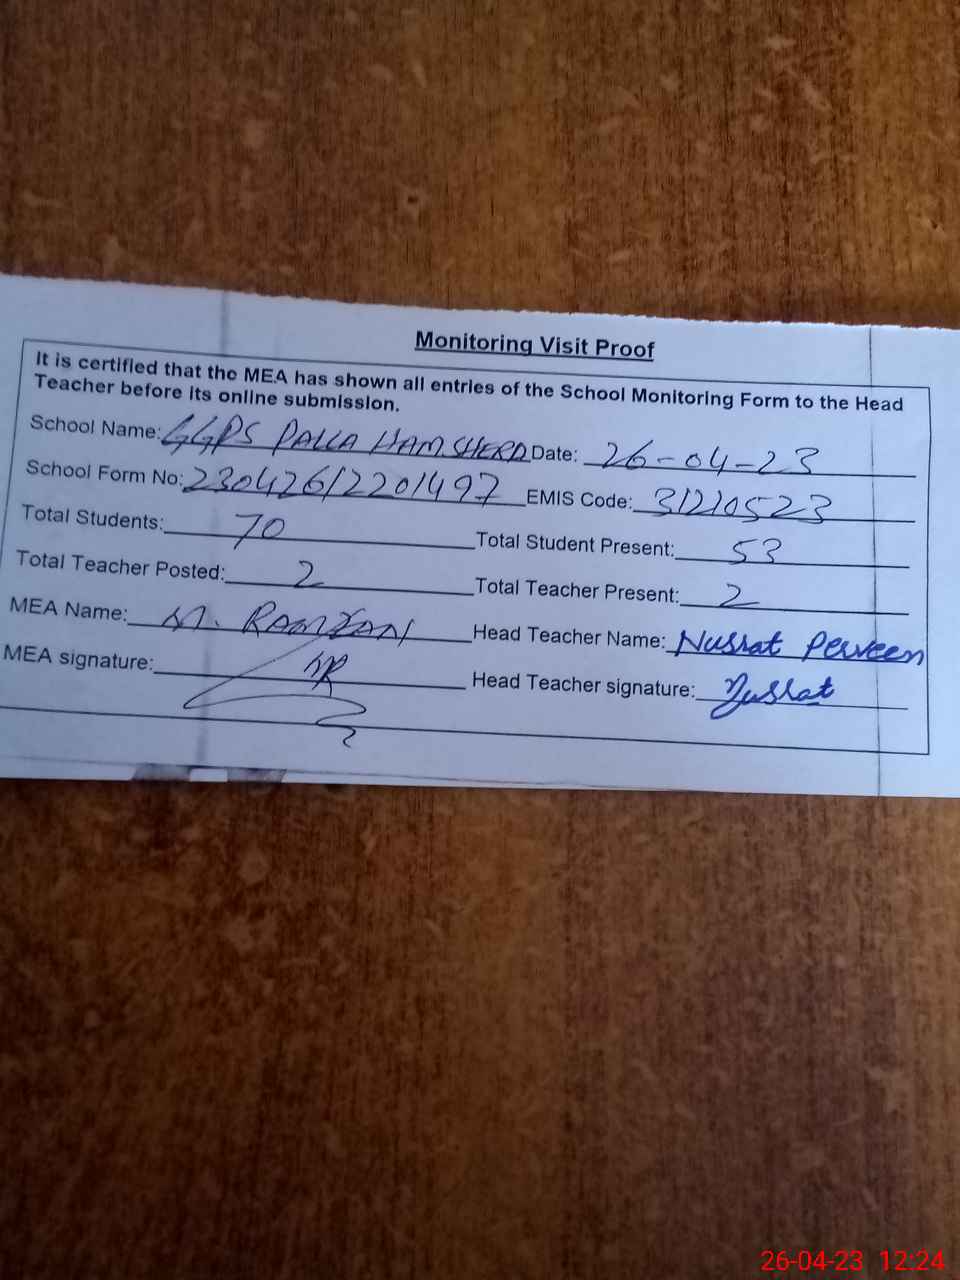 Monitoring Visit Proof
It is certified that the MEA has shown all entries of the School Monitoring Form to the Head
Teacher before its online submission.
School Name: GGPS PALLA HAMSHERD Date: 26-04-23
School Form No: 23042612201497 EMIS Code: 31210523
Total Students: 70 Total Student Present: 53
Total Teacher Posted: 2 Total Teacher Present: 2
MEA Name: M. RAMZAN Head Teacher Name: Nusrat Perveen
MEA signature: MR Head Teacher signature: Nusrat
26-04-23 12:24